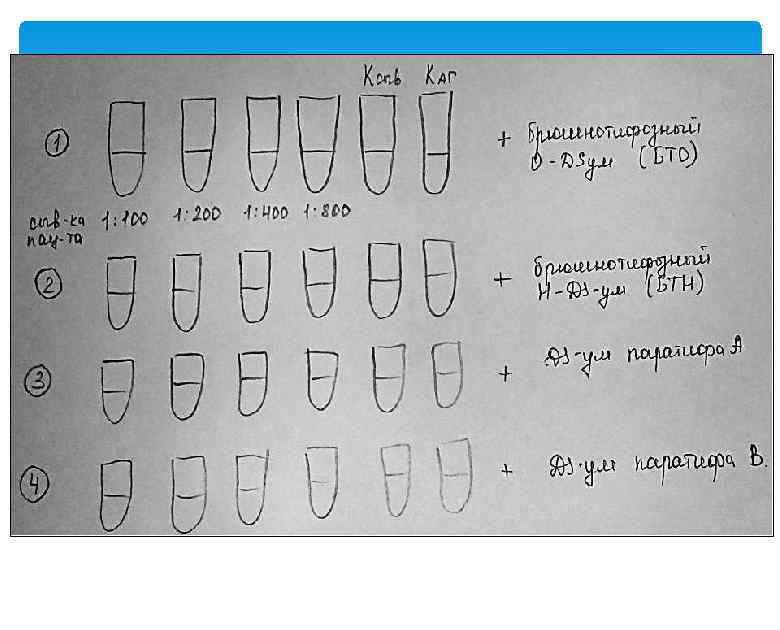 Kсыв Kаг
① + Брюшнотифозный
О-DSум (БТО)
сыв-ка 1:100 1:200 1:400 1:800
пац-та
② + Брюшнотифозный
Н-DS-ум (БТН)
③ + DS-ум паратифа А
④ + DS-ум паратифа В.